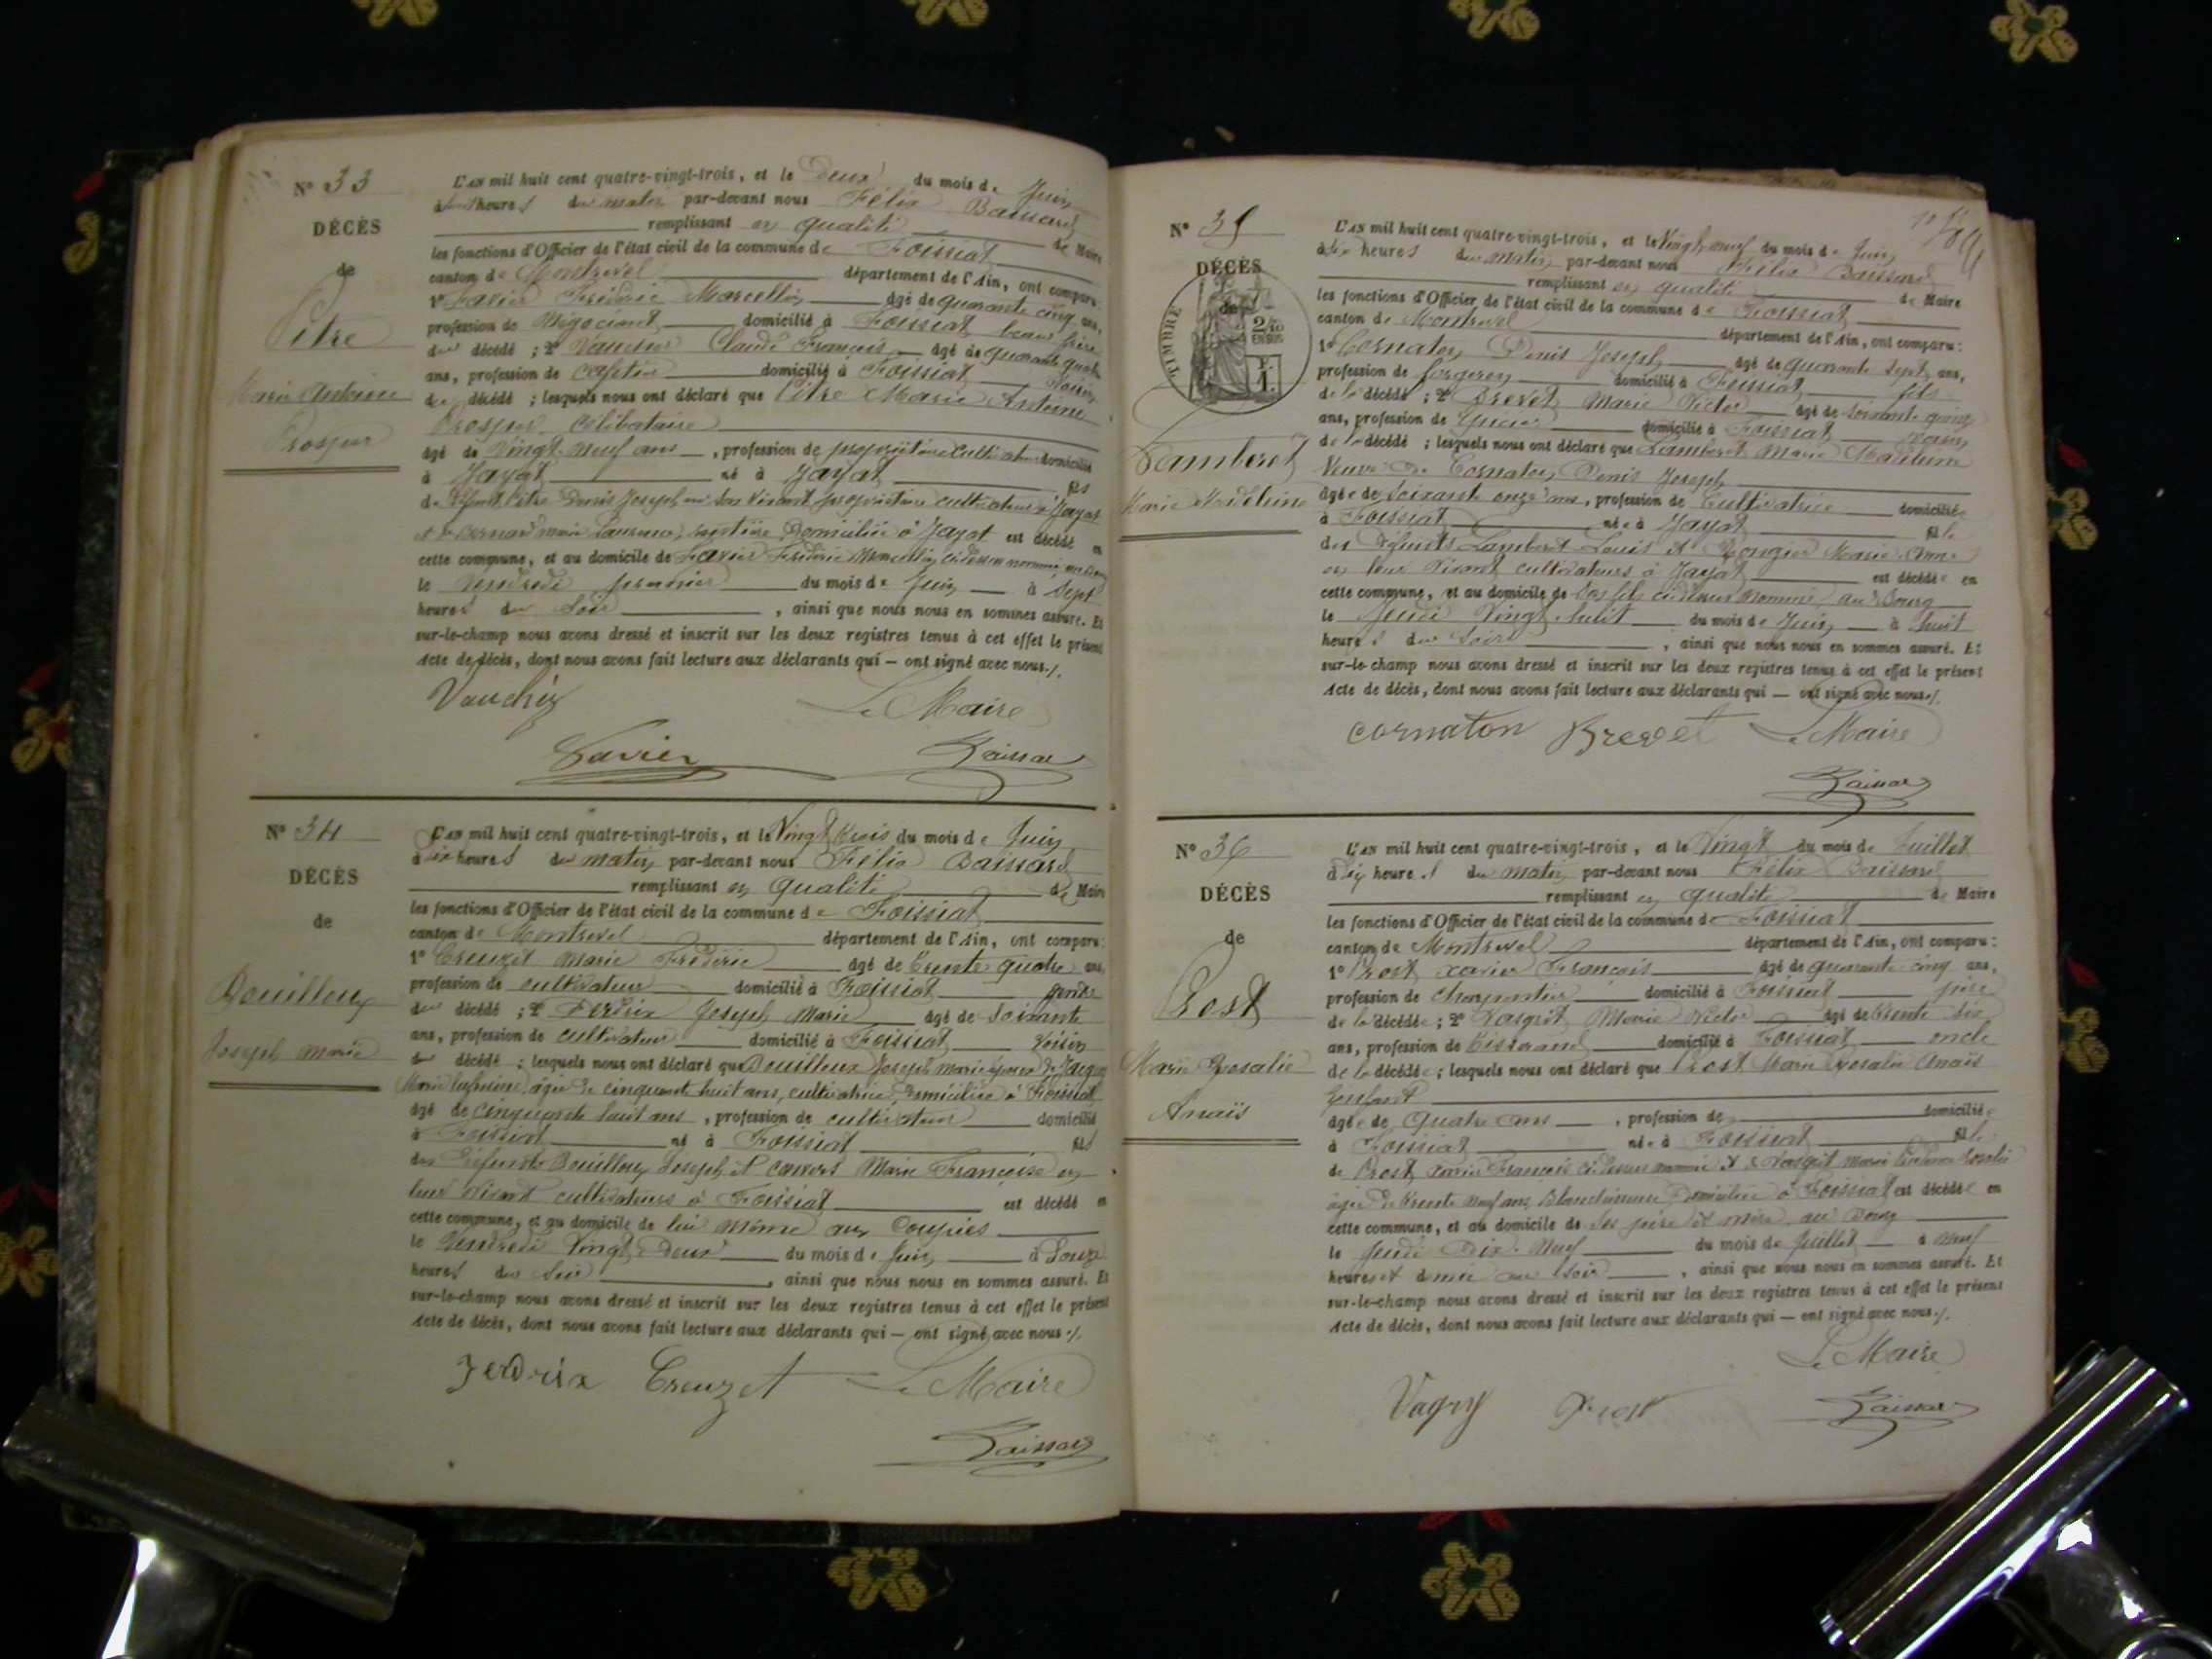 N° 33
DÉCÈS
de
Pitre
Marie Antoine
Prosper
L'AN mil huit cent quatre-vingt-trois, et le Deux du mois de Juin
à heures du matin par-devant nous Félix Baissard
remplissant en qualité de Maire
les fonctions d'Officier de l'état civil de la commune de Foissiat
canton de Montrevel département de l'Ain, ont comparu:
1° Favier Fréderic Marcellin âgé de quarante cinq ans,
profession de Négociant domicilié à Foissiat beau frère
du décédé ; 2° Claude François âgé de quarante quatre
ans, profession de cafetier domicilié à Foissiat voisin
du décédé ; lesquels nous ont déclaré que Pitre Marie Antoine
Prosper célibataire
âgé de vingt-neuf ans, profession de propriétaire cultivateur domicilié
à Jayat né à Jayat fils
de défunt Pitre Denis Joseph en son vivant propriétaire cultivateur à Jayat
et de Bernard Marie Laurence, rentière, Domiciliée à Jayat est décédé en
cette commune, et au domicile de Favier Fréderic Marcellin, ci dessus nommé, au Bourg
le Vendredi premier du mois de Juin à Sept
heures du Soir, ainsi que nous nous en sommes assuré. Et
sur-le-champ nous avons dressé et inscrit sur les deux registres tenus à cet effet le présent
Acte de décès, dont nous avons fait lecture aux déclarants qui — ont signé avec nous./.
Le Maire
Favier
N° 34
DÉCÈS
de
Bouilloux
Joseph Marie
L'AN mil huit cent quatre-vingt-trois, et le Vingt trois du mois de Juin
à six heures du matin par-devant nous Félix Baissard
remplissant en qualité de Maire
les fonctions d'Officier de l'état civil de la commune de Foissiat
canton de Montrevel département de l'Ain, ont comparu:
1° Creuzet Marie Fréderic âgé de Trente quatre ans,
profession de cultivateur domicilié à Foissiat gendre
du décédé ; 2° Perdrix Joseph Marie âgé de Soixante
ans, profession de cultivateur domicilié à Foissiat voisin
du décédé ; lesquels nous ont déclaré que Bouilloux Joseph Marie époux de
Marie âgée de cinquante huit ans, cultivatrice, Domiciliée à Foissiat
âgé de cinquante huit ans, profession de cultivateur domicilié
à Foissiat né à Foissiat fils
des Défunts Bouilloux Joseph et Marie Françoise en
leur vivant cultivateurs à Foissiat est décédé en
cette commune, et au domicile de lui même aux
le Vendredi Vingt Deux du mois de Juin à Onze
heures du Soir, ainsi que nous nous en sommes assuré. Et
sur-le-champ nous avons dressé et inscrit sur les deux registres tenus à cet effet le présent
Acte de décès, dont nous avons fait lecture aux déclarants qui — ont signé avec nous./.
Perdrix Creuzet Le Maire
N° 35
DÉCÈS
de
TIMBRE
Lamberet
Marie Madeleine
L'AN mil huit cent quatre-vingt-trois, et le Vingt neuf du mois de Juin
à six heures du matin par-devant nous Félix Baissard
remplissant en qualité de Maire
les fonctions d'Officier de l'état civil de la commune de Foissiat
canton de Montrevel département de l'Ain, ont comparu:
1° Cornaton Denis Joseph âgé de quarante sept ans,
profession de forgeron domicilié à Foissiat fils
de la décédée ; 2° Brevet Marie Victor âgé de soixante quinze
ans, profession de Epicier domicilié à Foissiat voisin
de la décédée ; lesquels nous ont déclaré que Lamberet Marie Madeleine
Veuve de Cornaton Denis Joseph
âgée de Soixante onze ans, profession de Cultivatrice domiciliée
à Foissiat née à Jayat fille
des Défunts Lamberet Louis et Marie Anne
en leur vivant cultivateurs à Jayat est décédée en
cette commune, et au domicile de son fils ci dessus nommé, au Bourg
le Jeudi Vingt huit du mois de Juin à huit
heures du Soir, ainsi que nous nous en sommes assuré. Et
sur-le-champ nous avons dressé et inscrit sur les deux registres tenus à cet effet le présent
Acte de décès, dont nous avons fait lecture aux déclarants qui — ont signé avec nous./.
Cornaton Brevet Le Maire
N° 36
DÉCÈS
de
Prost
Marie Rosalie
Anaïs
L'AN mil huit cent quatre-vingt-trois, et le Vingt du mois de Juillet
à Dix heures du matin par-devant nous Félix Baissard
remplissant en qualité de Maire
les fonctions d'Officier de l'état civil de la commune de Foissiat
canton de Montrevel département de l'Ain, ont comparu:
1° Prost Xavier François âgé de quarante cinq ans,
profession de charpentier domicilié à Foissiat père
de la décédée ; 2° Marie Victor âgé de Trente six
ans, profession de Tisserand domicilié à Foissiat oncle
de la décédée ; lesquels nous ont déclaré que Prost Marie Rosalie Anaïs
enfant
âgée de Quatre ans, profession de domiciliée
à Foissiat née à Foissiat fille
de Prost Xavier François ci dessus nommé et de Marie Rosalie
âgée de trente neuf ans, Blanchisseuse, Domiciliée à Foissiat est décédée en
cette commune, et au domicile de ses père et mère, au Bourg
le Jeudi Dix-Neuf du mois de Juillet à Neuf
heures et demie du Soir, ainsi que nous nous en sommes assuré. Et
sur-le-champ nous avons dressé et inscrit sur les deux registres tenus à cet effet le présent
Acte de décès, dont nous avons fait lecture aux déclarants qui — ont signé avec nous./.
Le Maire
Prost